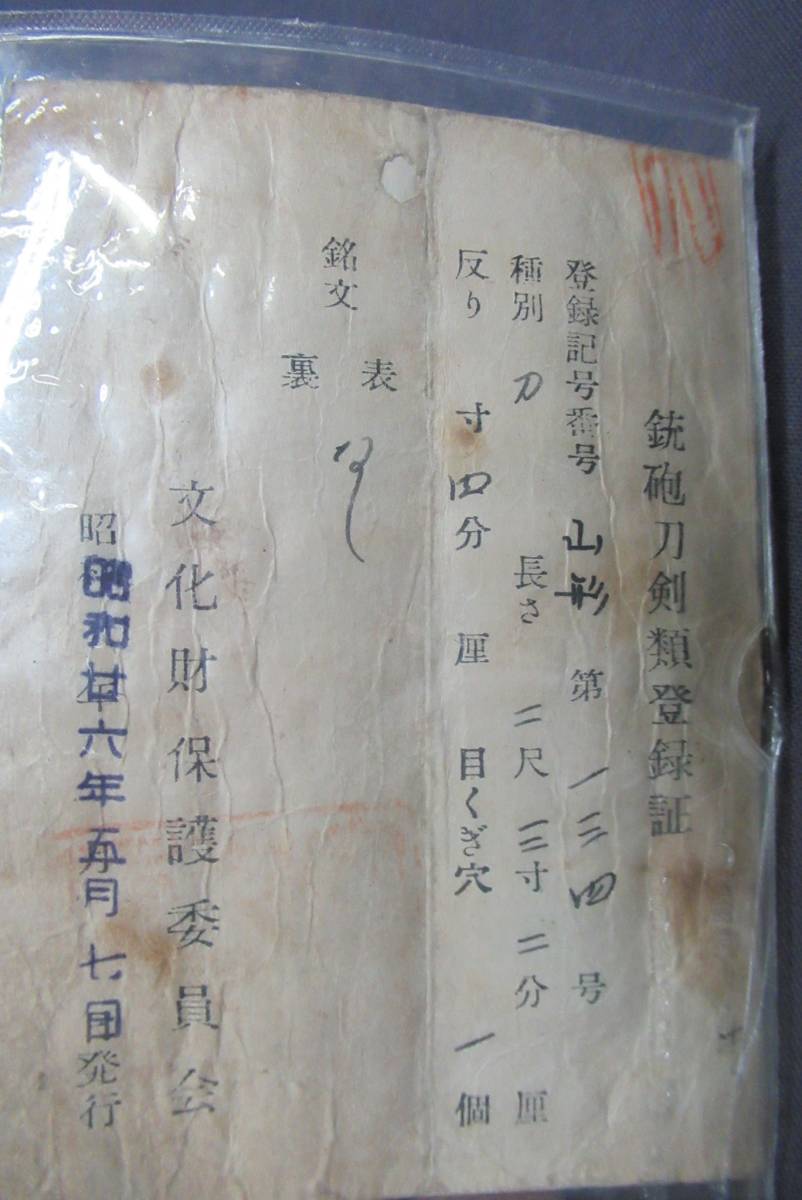 銃砲刀剣類登録証
登録記号番号 山形 第 一二四 号
種別 刀 長さ 二尺 三寸 二分 厘
反り 寸 四分 厘 目くぎ穴 一 個
銘文
表 なし
裏
文化財保護委員会
昭和廿六年五月七日発行